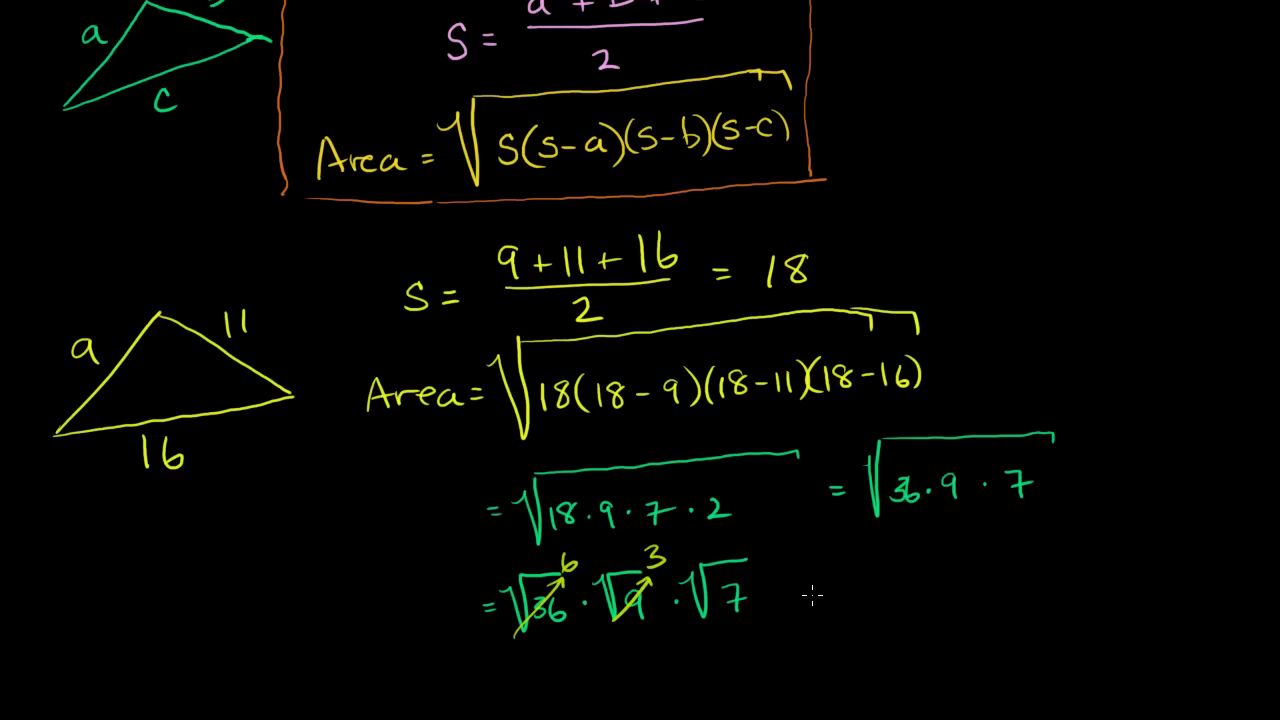 a
S = a + b + / 2
c
Area = √S(S-a)(S-b)(S-c)
S = 9 + 11 + 16 / 2 = 18
9
11
16
Area = √18(18-9)(18-11)(18-16)
= √18·9·7·2 = √36·9·7
6 3
= √36 · √9 · √7